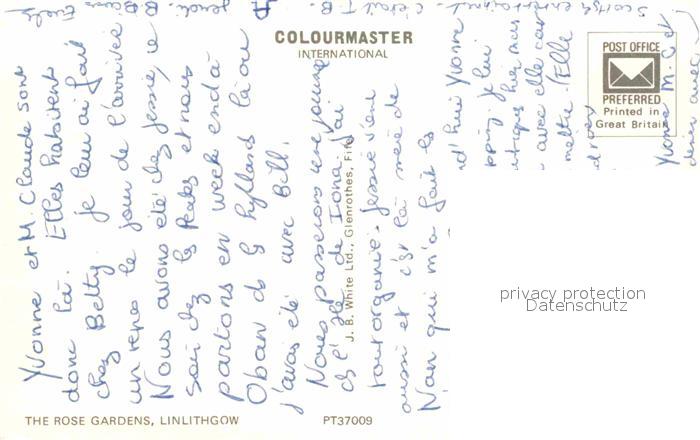 COLOURMASTER
INTERNATIONAL
POST OFFICE
PREFERRED
Printed in
Great Britain
Yvonne et M. Claude sont
donc là. Elles habitent
chez Betty. je leur ai fait
un repas le jour de l'arrivée
Nous avons été chez Jessie, ce
soir chez les Peales et nous
partons en week end à
Oban ds les Hyllands là où
j'avais été avec Bill.
Nous passerons une journée
ds l'île de Iona. J'ai
tout organisé. Jessie s'en
aussi et c'est la mère de
Nan qui m'a fait les
J. B. White Ltd., Glenrothes, Fife
d'hui Yvonne
je lui
hier nous
avec elle car
mettre. (Elle
Yvonne M. C et
privacy protection
Datenschutz
THE ROSE GARDENS, LINLITHGOW
PT37009